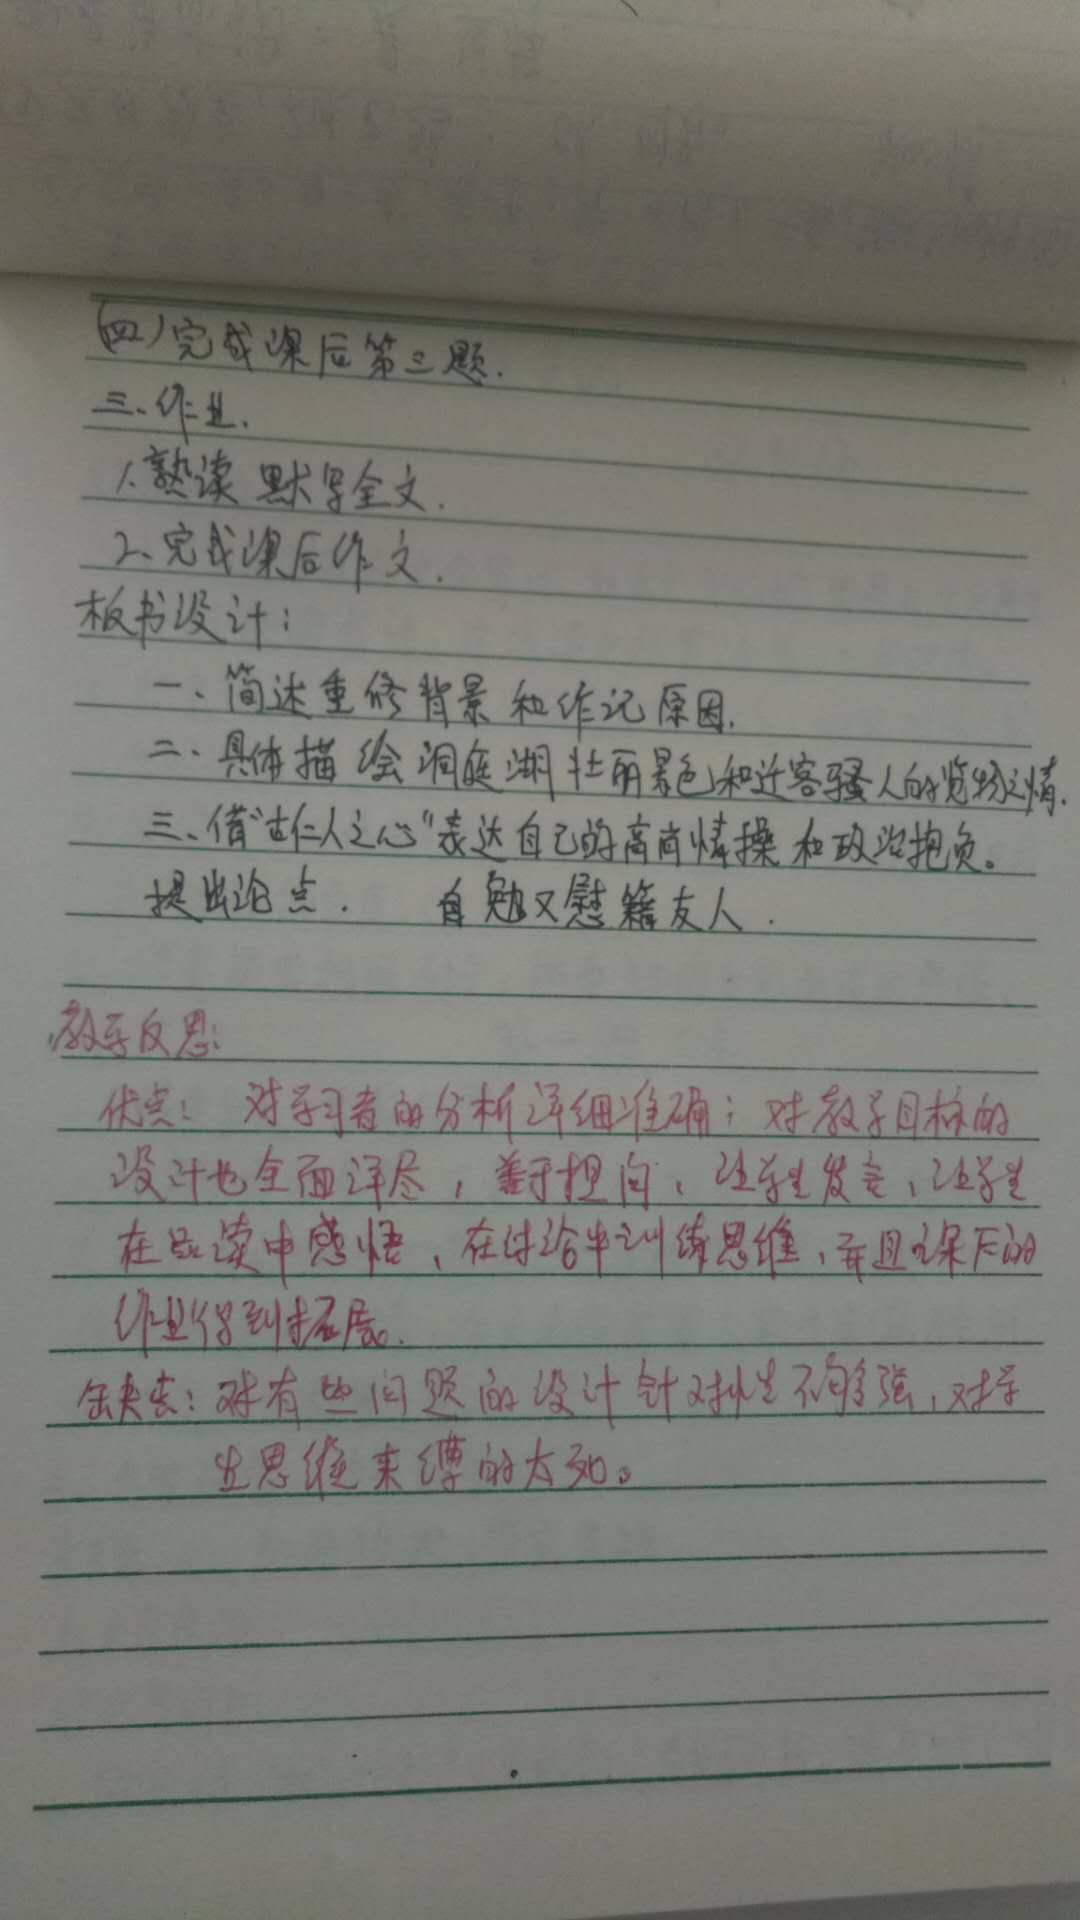 (四)完成课后第三题.
三、作业.
1.熟读 默写全文.
2、完成课后作文.
板书设计:
一、简述重修背景和作记原因.
二、具体描绘洞庭湖壮丽景色和迁客骚人的览物之情.
三、借“古仁人之心”表达自己的高尚情操和政治抱负。
提出论点. 自勉又慰籍友人.
教学反思:
优点: 对学习者的分析详细准确;对教学目标的
设计也全面详尽,善于提问,让学生发言,让学生
在品读中感悟,在讨论中训练思维,并且课后的
作业得到拓展。
缺点:对有些问题的设计针对性不够强,对学
生思维束缚的太死。